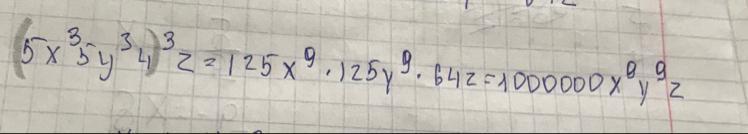 (5x³5y³4)³z=125x⁹·125y⁹·64z=1000000x⁹y⁹z